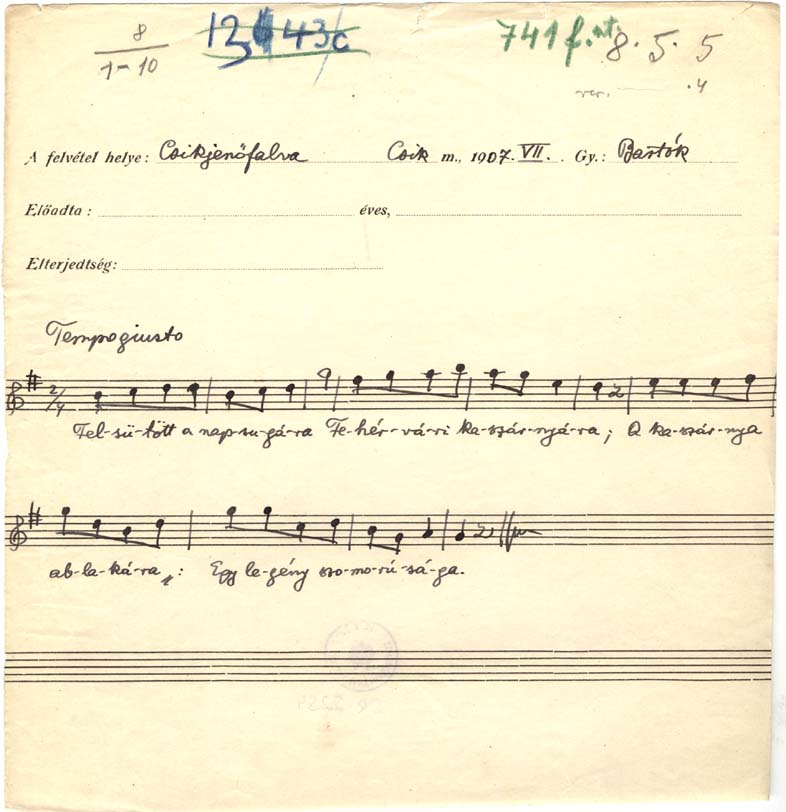 8 12 43/c 741 f. nt. 8. 5. 5
1-10
var. .4
A felvétel helye: Csikjenőfalva Csik m., 1907. VII. Gy.: Bartók
Előadta: éves,
Elterjedtség:
Tempo giusto
2/4
Fel-sü-tött a nap-su-gá-ra Fe-hér-vá-ri ka-szár-nyá-ra; A ka-szár-nya
ab-la-ká-ra: Egy le-gény szo-mo-rú-sá-ga.